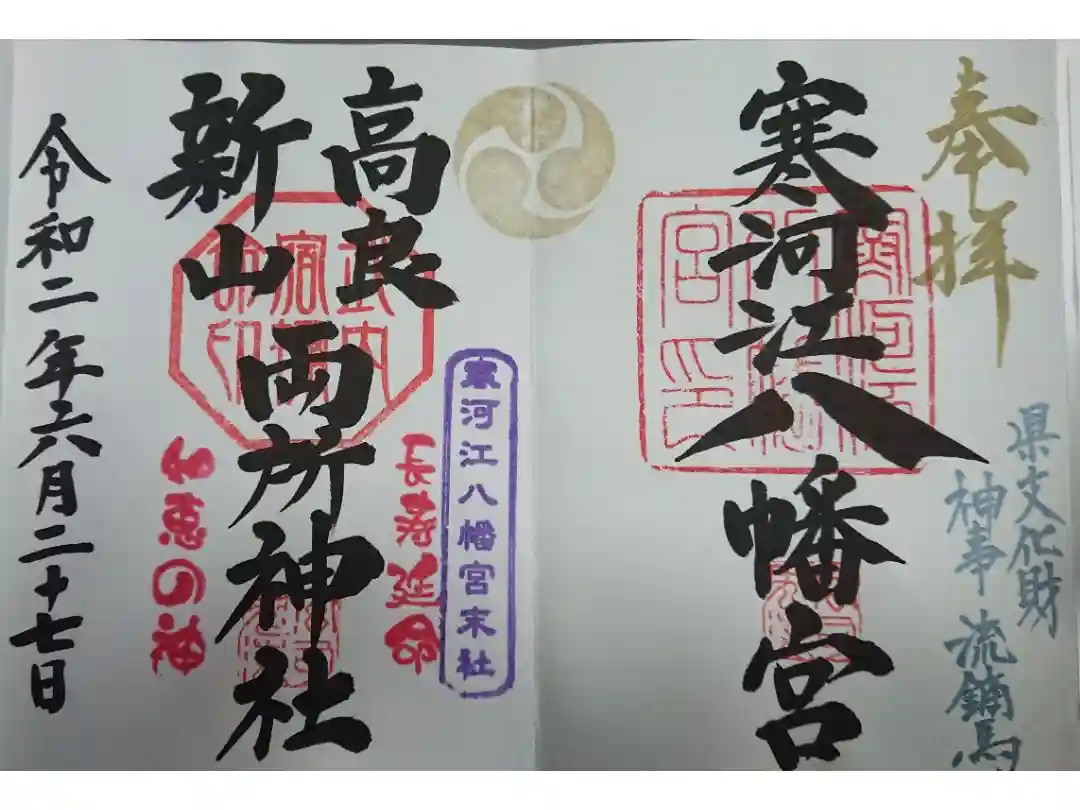 奉拝
県文化財
神事 流鏑馬
寒河江八幡宮
寒河江八幡宮末社
長寿延命
高良
新山
両所神社
知恵の神
令和二年六月二十七日